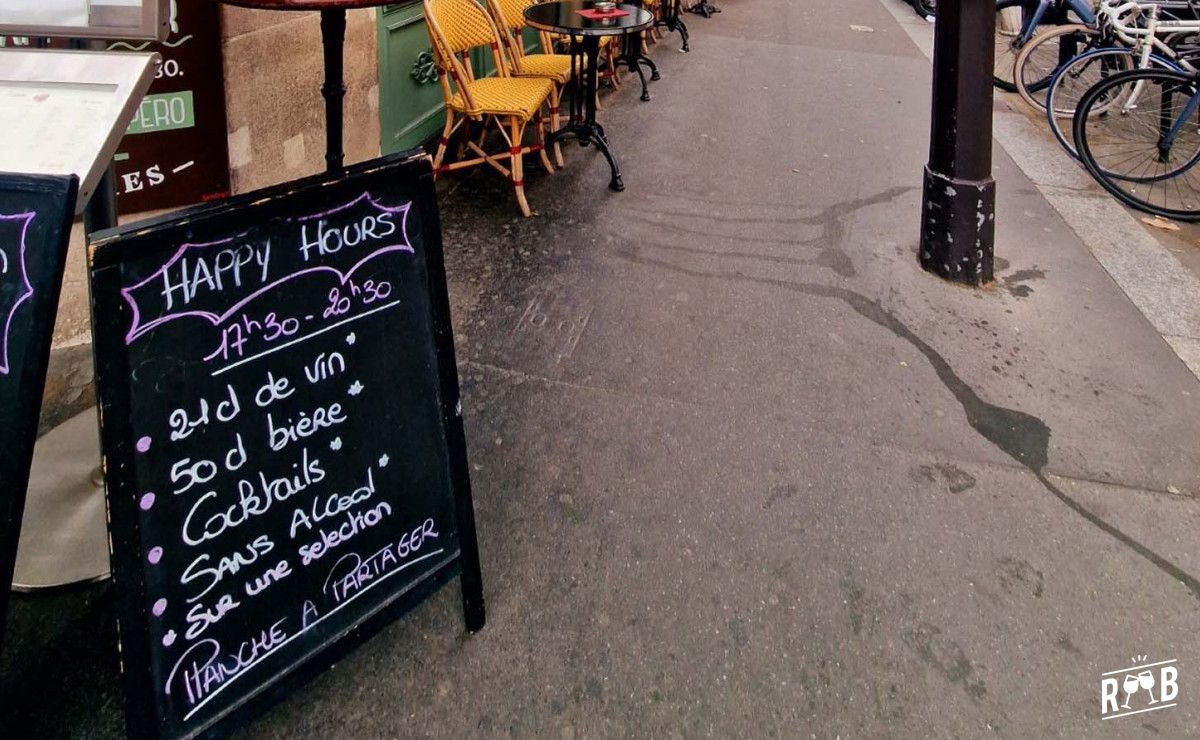 30.
PÉRO
ES –
HAPPY HOURS
17h30 - 20h30
21d de vin*
50d bière*
Cocktails*
SANS ALCOOL*
* SUR une selection
PLANCHE A PARTAGER
R B